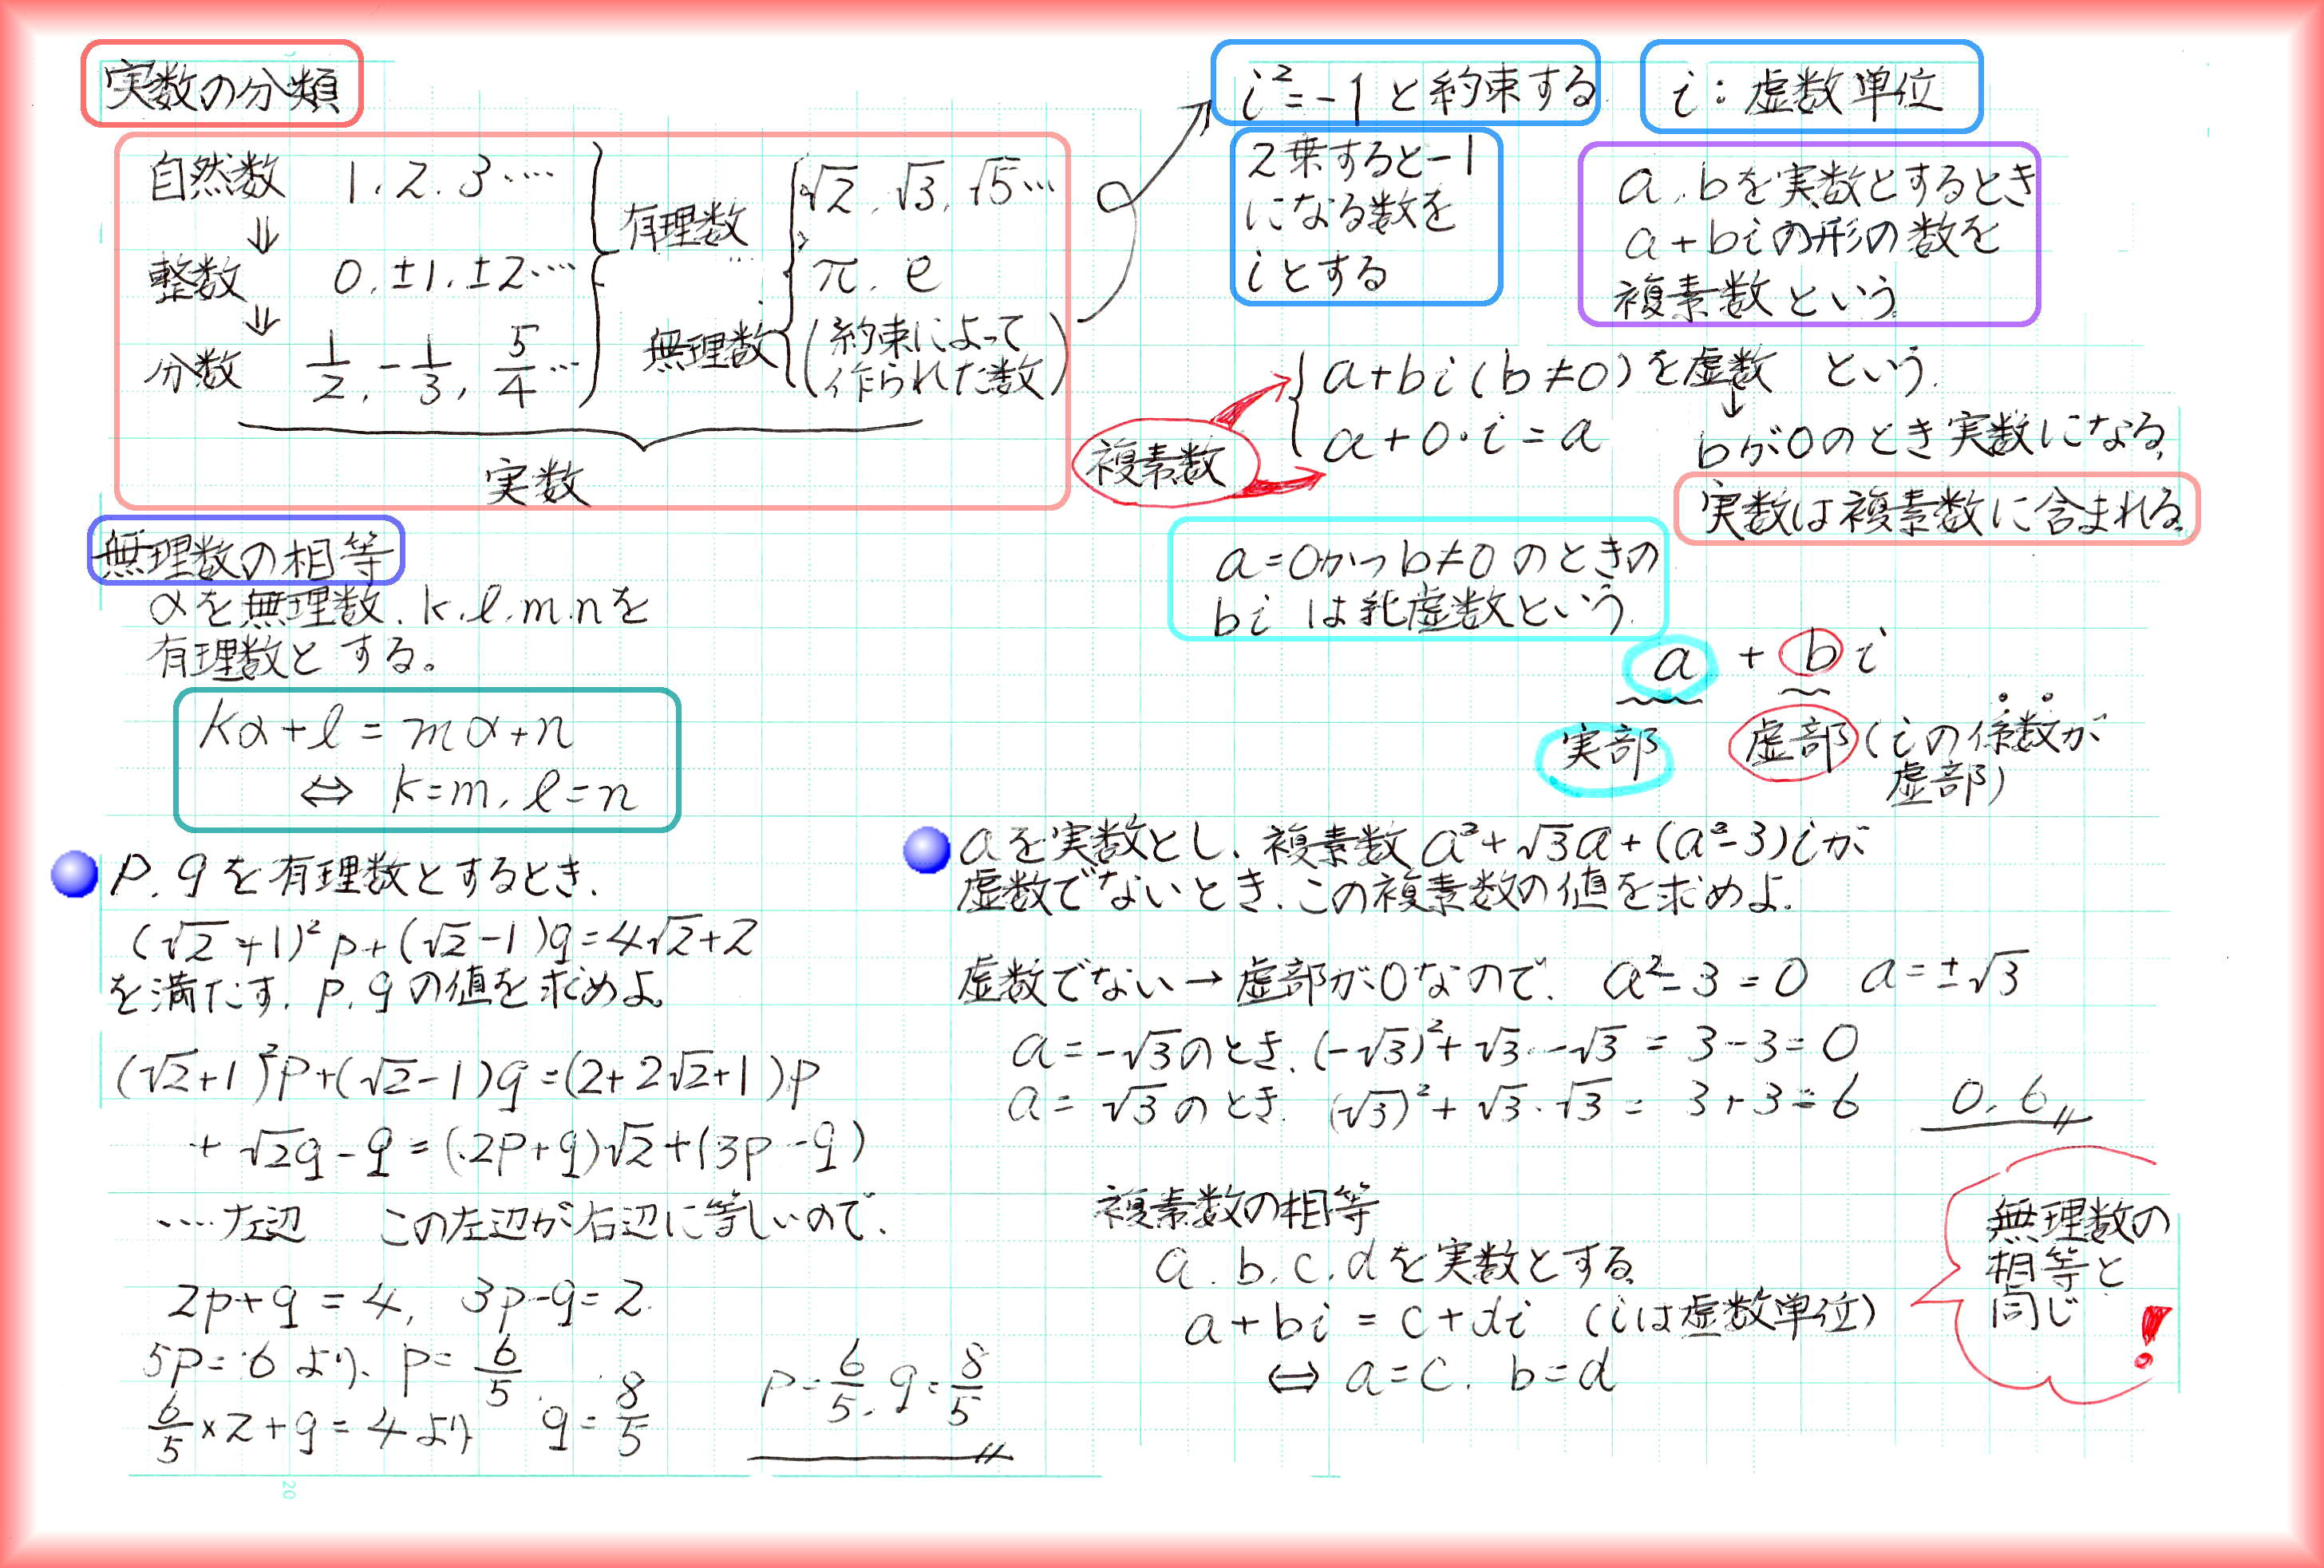 実数の分類
自然数 1, 2, 3 ……
⇓
整数 0, ±1, ±2 ……
⇓
分数 1/2, -1/3, 5/4 …
有理数
無理数
√2, √3, √5 …
π, e
(約束によって
作られた数)
実数
無理数の相等
αを無理数, k, l, m, nを
有理数とする。
kα+l=mα+n
⇔ k=m, l=n
p, qを有理数とするとき,
(√2+1)²p+(√2-1)q=4√2+2
を満たす, p, qの値を求めよ。
(√2+1)²p+(√2-1)q=(2+2√2+1)p
+√2q-q=(2p+q)√2+(3p-q)
……左辺 この左辺が右辺に等しいので,
2p+q=4, 3p-q=2
5p=6より, p=6/5
6/5×2+q=4より q=8/5
p=6/5, q=8/5
i²=-1と約束する
i:虚数単位
2乗すると-1
になる数を
iとする
a, bを実数とするとき
a+biの形の数を
複素数という
複素数
a+bi(b≠0)を虚数 という.
↓
a+0・i=a bが0のとき実数になる.
実数は複素数に含まれる.
a=0かつb≠0のときの
bi は純虚数という.
a + b i
実部 虚部(iの係数が
虚部)
aを実数とし, 複素数a²+√3a+(a²-3)iが
虚数でないとき, この複素数の値を求めよ.
虚数でない→虚部が0なので, a²-3=0 a=±√3
a=-√3のとき, (-√3)²+√3・-√3=3-3=0
a=√3のとき, (√3)²+√3・√3=3+3=6 0, 6
複素数の相等
a, b, c, dを実数とする.
a+bi=c+di (iは虚数単位)
⇔ a=c, b=d
無理数の
相等と
同じ!
20